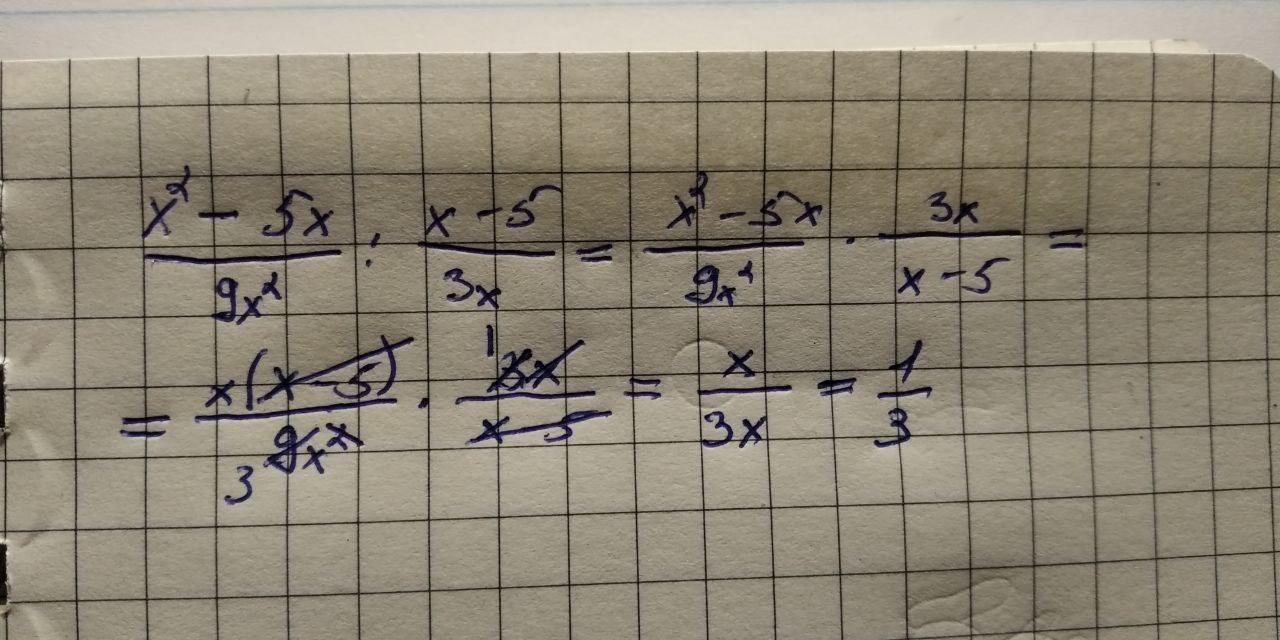 (x² - 5x)/(9x²) : (x - 5)/(3x) = (x² - 5x)/(9x²) · (3x)/(x - 5) =
= (x(x - 5))/(3 9x²) · (1 3x)/(x - 5) = x/(3x) = 1/3